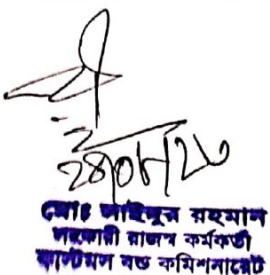 মোঃ সাইদুর রহমান
সহকারী রাজস্ব কর্মকর্তা
কাস্টমস বন্ড কমিশনারেট